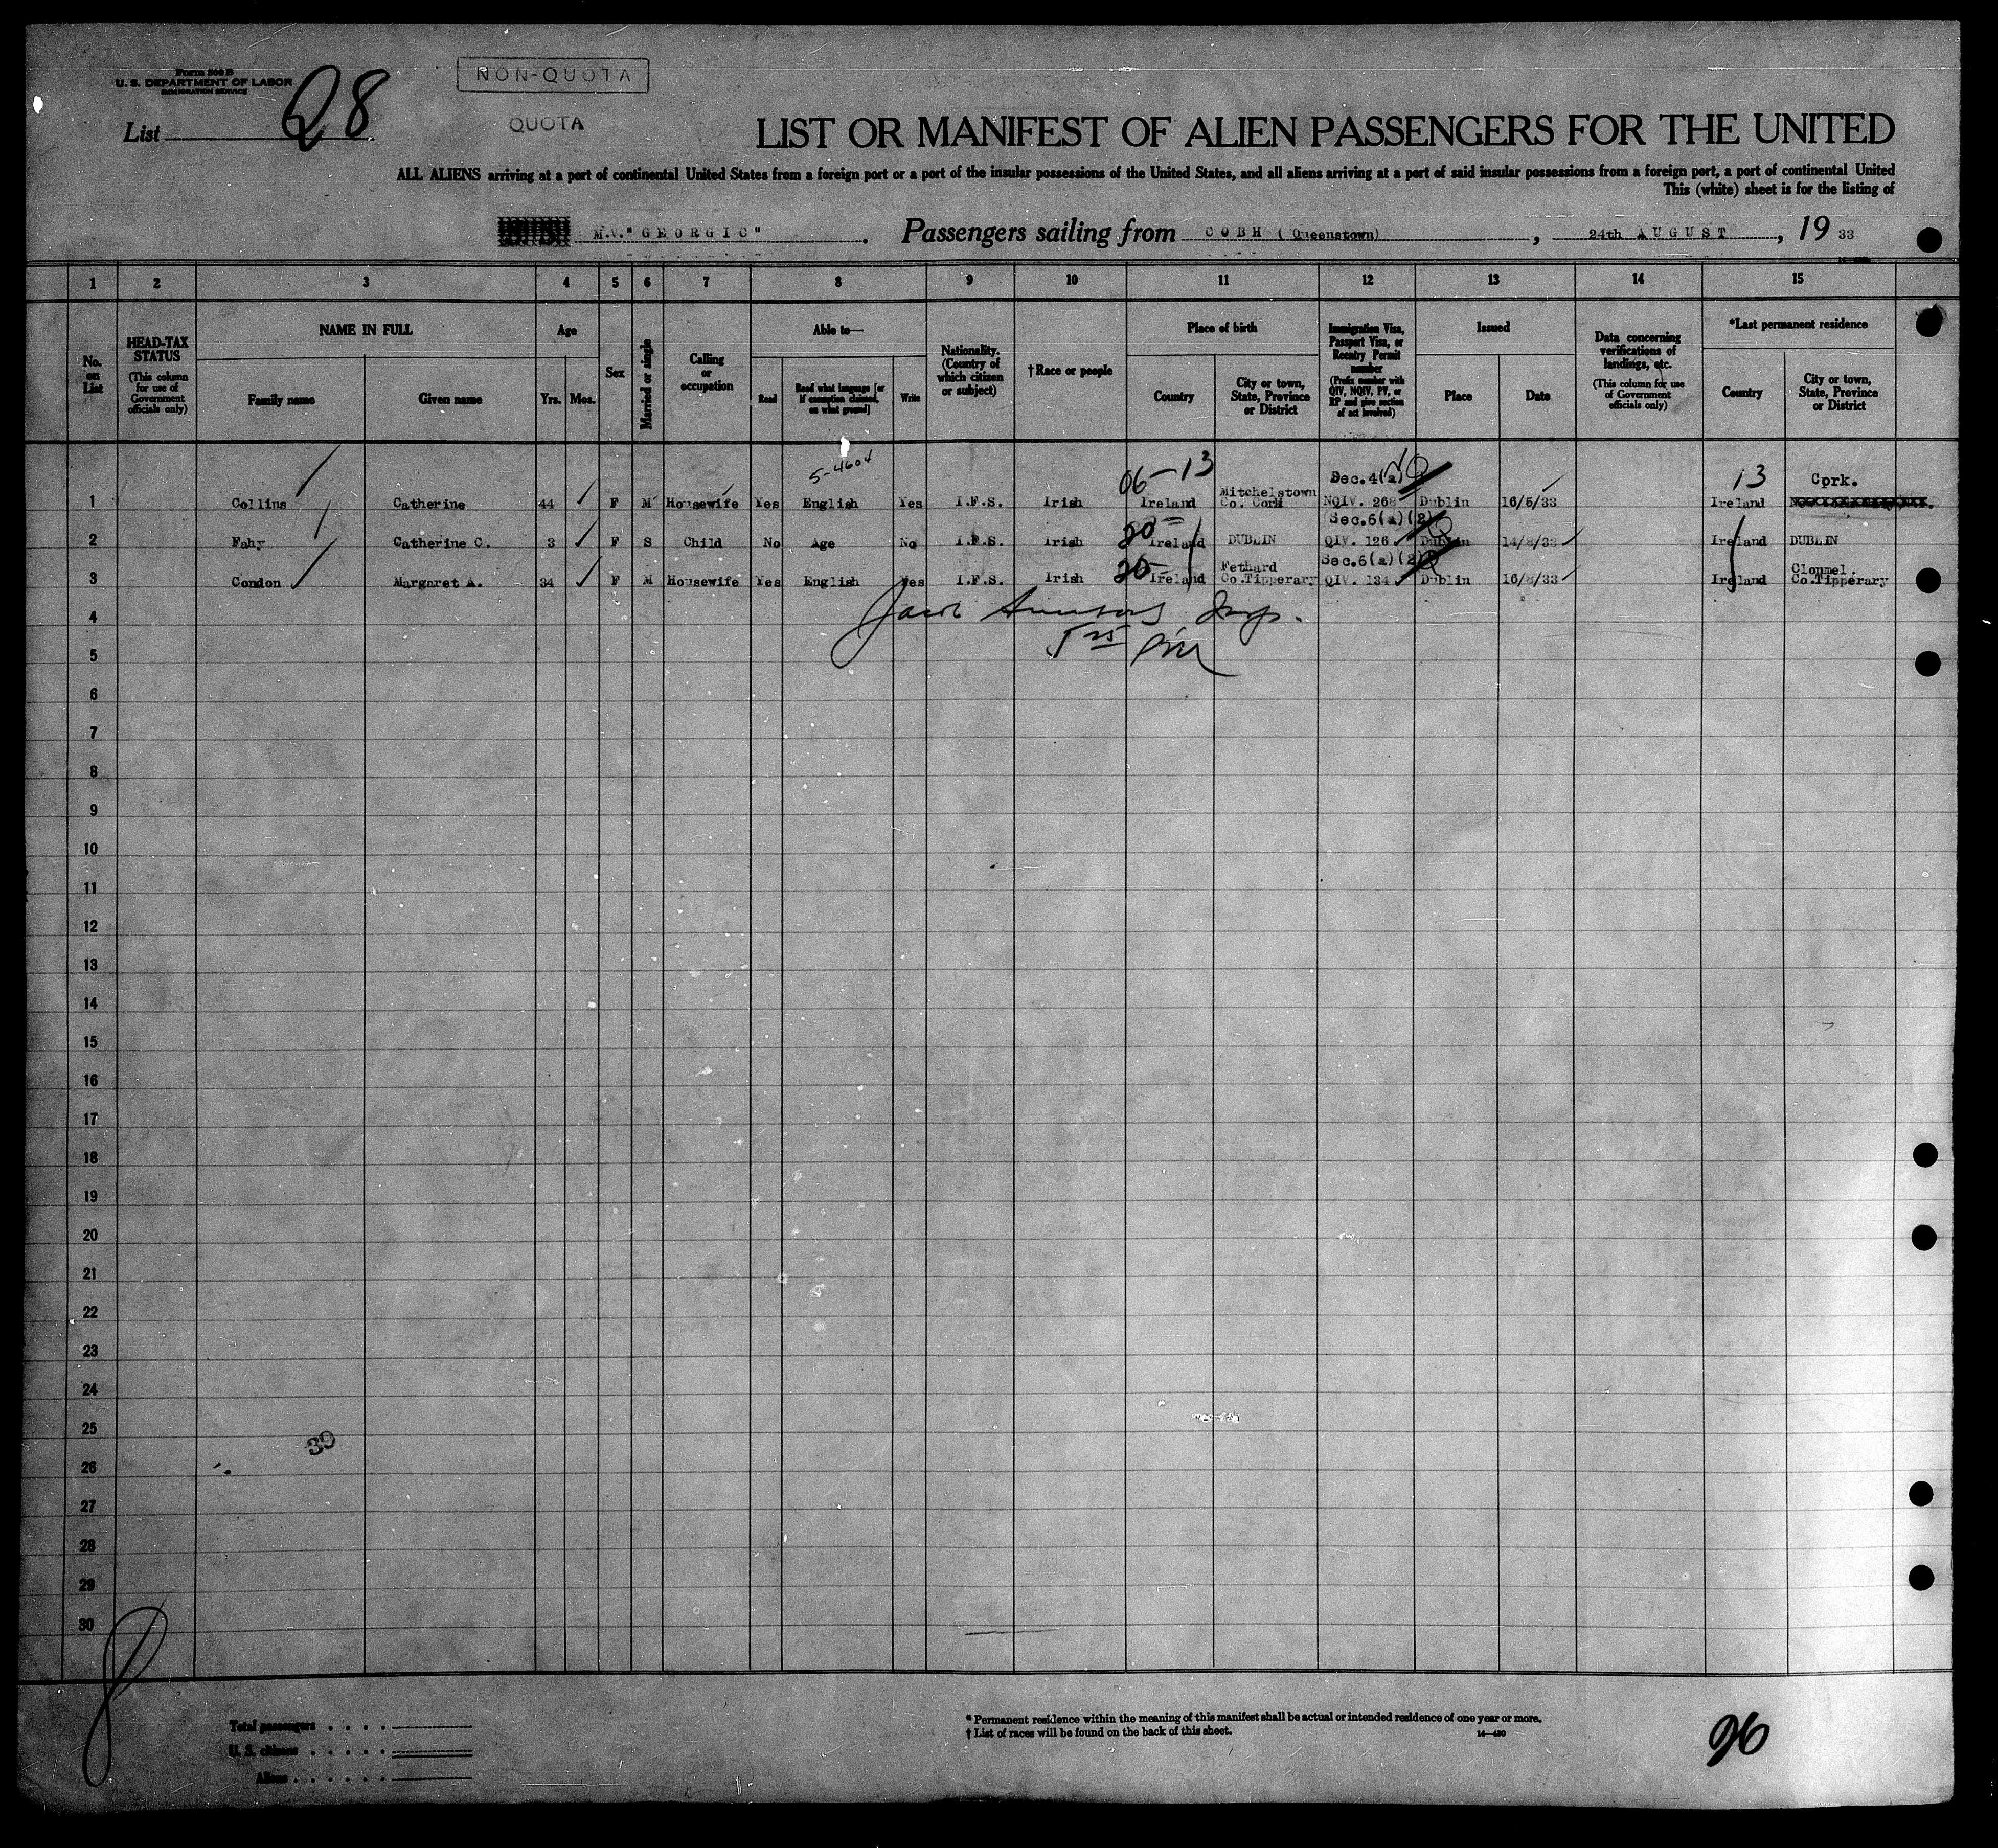 Form 500 B
U. S. DEPARTMENT OF LABOR
IMMIGRATION SERVICE
List 28
NON-QUOTA
QUOTA
LIST OR MANIFEST OF ALIEN PASSENGERS FOR THE UNITED
ALL ALIENS arriving at a port of continental United States from a foreign port or a port of the insular possessions of the United States, and all aliens arriving at a port of said insular possessions from a foreign port, a port of continental United
This (white) sheet is for the listing of
M.V."GEORGIC" . Passengers sailing from COBH (Queenstown) , 24th AUGUST , 19 33
1 2 3 4 5 6 7 8 9 10 11 12 13 14 15
No. on List
HEAD-TAX STATUS
(This column for use of Government officials only)
NAME IN FULL
Family name
Given name
Age
Yrs.
Mos.
Sex
Married or single
Calling or occupation
Able to—
Read
Read what language [or if exemption claimed, on what ground]
Write
Nationality. (Country of which citizen or subject)
†Race or people
Place of birth
Country
City or town, State, Province or District
Immigration Visa, Passport Visa, or Reentry Permit number
(Prefix number with QIV, NQIV, PV, or RP and give section of act involved)
Issued
Place
Date
Data concerning verifications of landings, etc.
(This column for use of Government officials only)
*Last permanent residence
Country
City or town, State, Province or District
5-4604 06-13 Sec.4(a) 13 Cork.
1 Collins Catherine 44 F M Housewife Yes English Yes I.F.S. Irish Ireland Mitchelstown Co. Cork NQIV. 268 Dublin 16/5/33 Ireland
Sec.6(a)(2)
2 Fahy Catherine C. 3 F S Child No Age No I.F.S. Irish Ireland DUBLIN QIV. 126 Dublin 14/8/33 Ireland DUBLIN
Sec.6(a)(2)
3 Condon Margaret A. 34 F M Housewife Yes English Yes I.F.S. Irish Ireland Fethard Co.Tipperary QIV. 134 Dublin 16/8/33 Ireland Clonmel. Co.Tipperary
4
5
6
7
8
9
10
11
12
13
14
15
16
17
18
19
20
21
22
23
24
25
39
26
27
28
29
30
Total passengers . . . .
U. S. citizens . . . . .
Aliens . . . . . .
* Permanent residence within the meaning of this manifest shall be actual or intended residence of one year or more.
† List of races will be found on the back of this sheet.
14—430
96